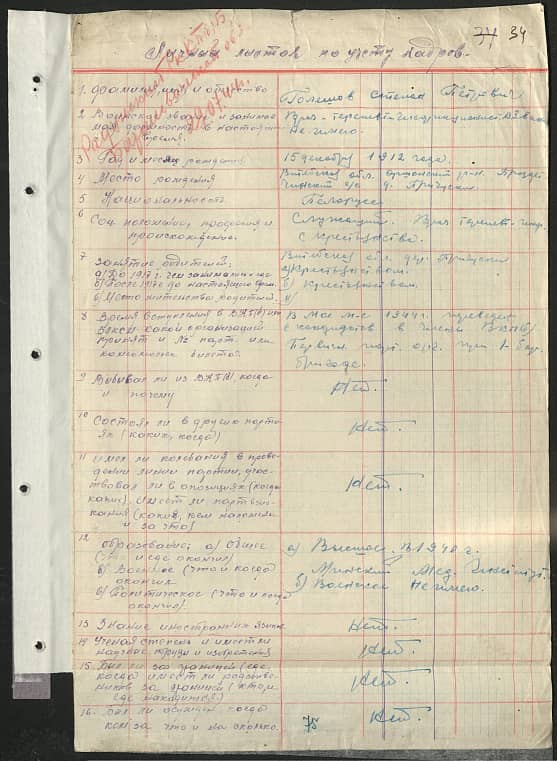 34
Личный листок по учету кадров.
1. Фамилия, имя и отчество
Степан Петрович
2 Воинское звание и занимае
мая должность в настоящ.
время.
Не имею.
3 Год и месяц рождения
15 декабря 1912 года.
4 Место рождения
Витебская обл.
5 Национальность
Белорус
6 Соц. положение, профессия и
происхождение.
Служащий.
с крестьянства.
7 Занятие родителей,
а) До 1917 г. чем занимались
б) После 1917 г. до настоящего врем.
в) Место жительства родителей.
Витебская обл. дер.
а) Крестьянством.
б) Крестьянством.
в)
8 Время вступления в ВКП(б) или
какой организацией
принят и № парт. или
комсомольск. билета.
В Мае м-се 1944 г. переведен
с кандидатов в члены ВКП(б)
Первичн. парт. орг. при 1-
бригаде.
9 Выбывал ли из ВКП(б), когда
и почему
Нет.
10 Состоял ли в других парти-
ях (каких, когда)
Нет.
11 Имел ли колебания в прове-
дении линии партии, участ-
вовал ли в опозициях (когда
каких). Имеет ли партвзыс-
кания (какие, кем наложены
и за что)
Нет.
12 Образование; а) Общее
(что и где окончил)
б) Военное (что и когда
окончил
в) Политическое (что и когда
окончил).
а) Высшее. В 1940 г.
Минский Мед. Институт.
б) Военское не имею.
13 Знание иностранных языков
Нет.
14 Ученая степень и имеет ли
научные труды и изобретения
Нет.
15. Был ли за границей (где,
когда) имеет ли родствен-
ников за границей (кто и
где находится.)
Нет.
16. Был ли осужден когда
кем за что и на сколько.
75
Нет.